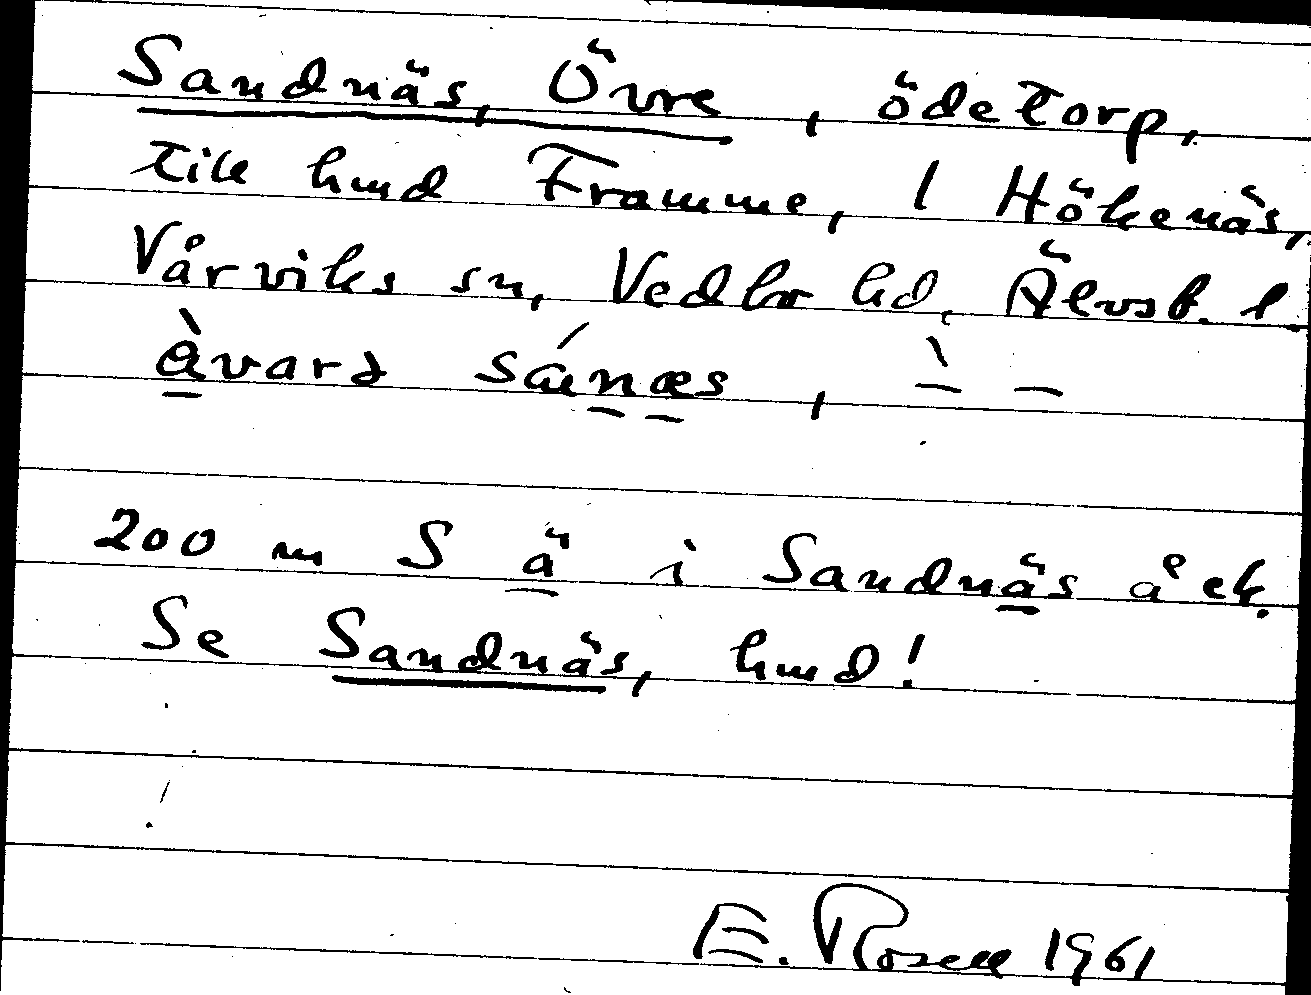 Sandnäs, Övre, ödetorp,
till hmd Framme, 1 Hökenäs,
Vårviks sn, Vedbo hd, Älvsb. l.
àvard sánæs, ̀– –
200 m S ä i Sandnäs å ek.
Se Sandnäs, hmd!
E. Rosell 1961